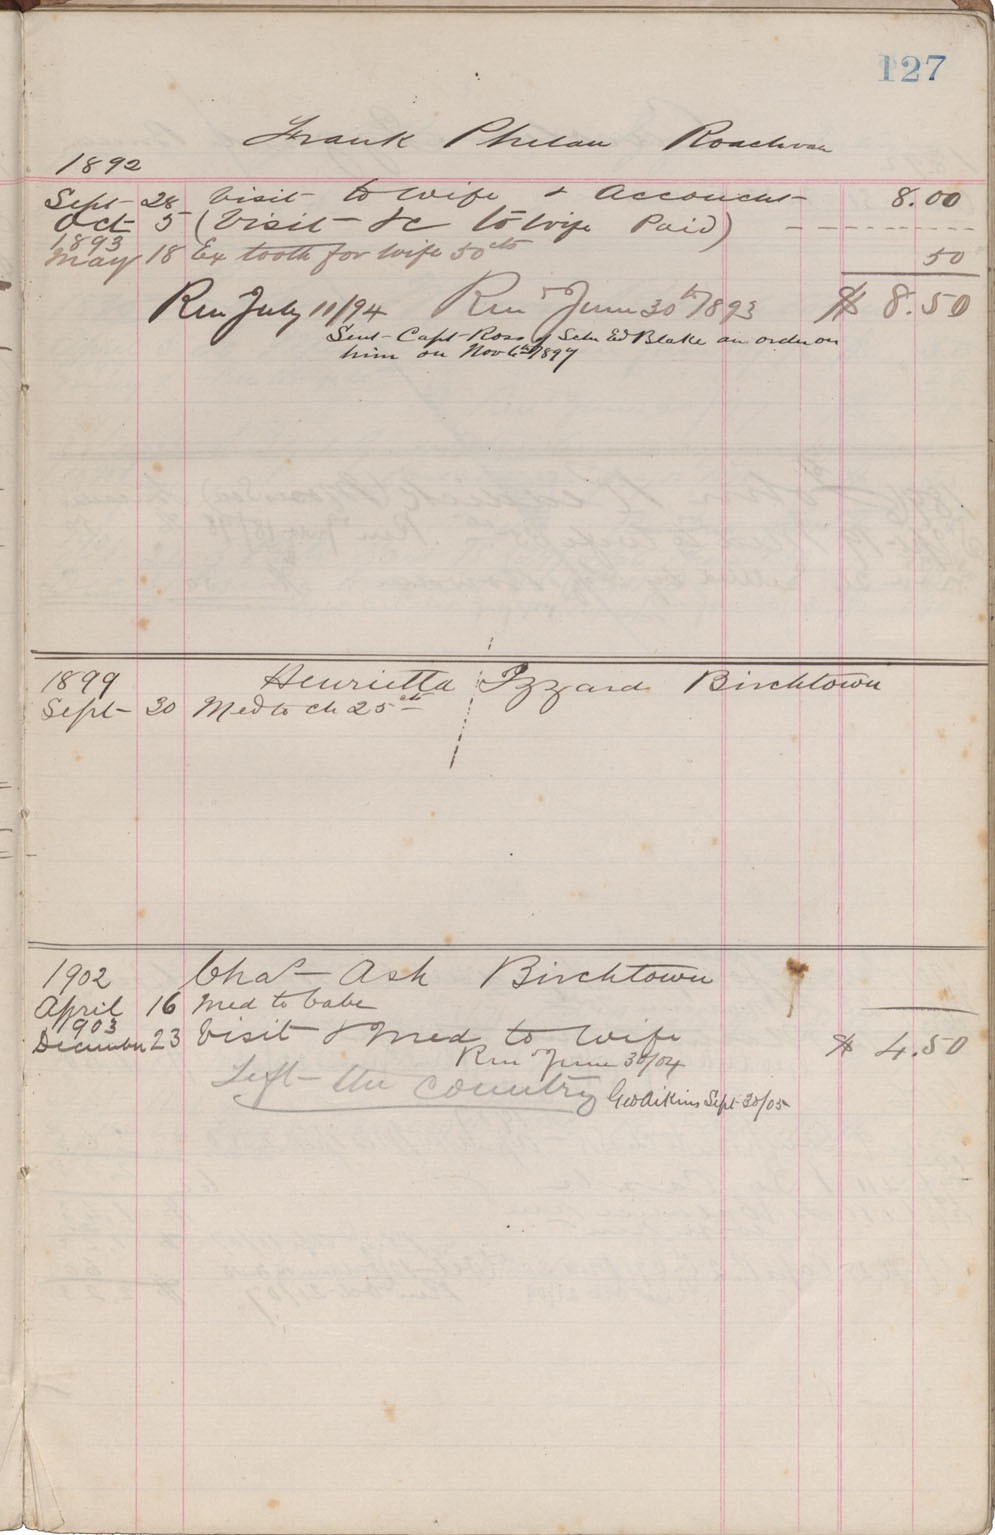 127
Frank Phelan Roachvan
1892
Sept 28 Visit to wife & Accoucht 8.00
Oct 5 (Visit &c to wife Paid)
1893
May 18 Ex tooth for wife 50cts 50
Ren July 11/94 Ren June 30th/893 $ 8.50
Sent Capt Ross of Schr Ed Blake an order on
him on Nov 6th/1897
1899 Henrietta Izzard Birchtown
Sept 30 Med to ch 25ct
1902 Chas Ash Birchtown
April 16 Med to babe
1903
December 23 Visit & Med to wife $ 4.50
Ren June 30/04
Left the country Geo Aikins Sept 30/05